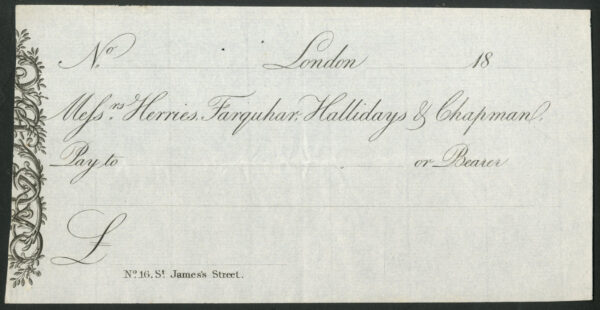 No. London 18
Messrs. Herries, Farquhar, Hallidays & Chapman.
Pay to or Bearer
£
No. 16, St. James's Street.